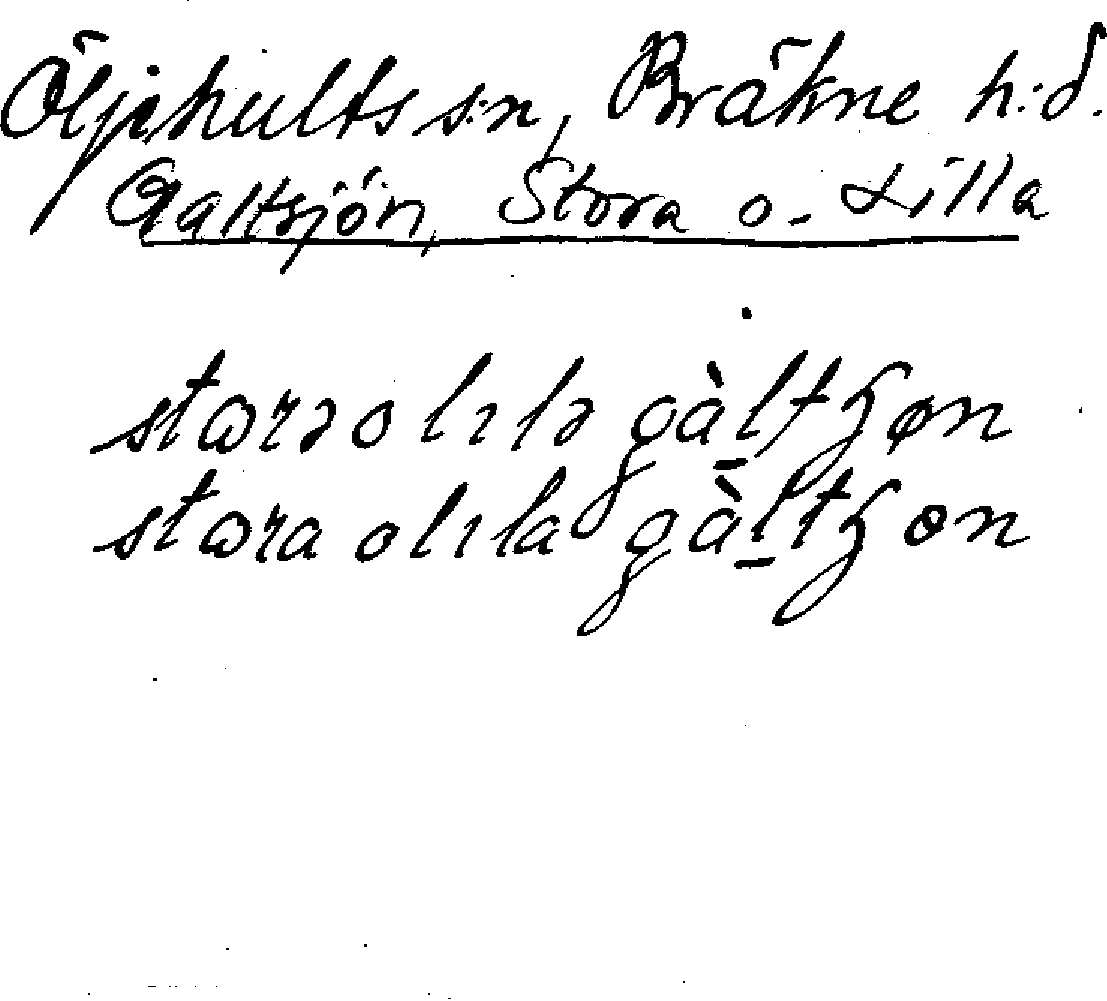 Öljehults s:n, Bräkne h:d.
Galtsjön, Stora o. Lilla
starə o lılə gàltʒøn
stara o lıla gàltʒon